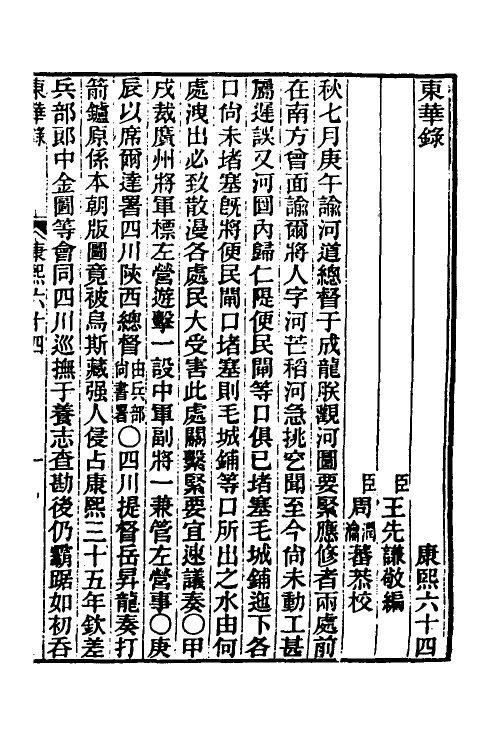 東華錄　康熙六十四
臣王先謙敬編
臣周潤蕃瀹蕃恭校
秋七月庚午諭河道總督于成龍朕觀河圖要緊應修者兩處前
在南方曾面諭爾將人字河芒稻河急挑乞聞至今尙未動工甚
屬遲誤又河圖內歸仁隄便民閘等口俱已堵塞毛城鋪迤下各
口尙未堵塞旣將便民閘口堵塞則毛城鋪等口所出之水由何
處洩出必致散漫各處民大受害此處關繫緊要宜速議奏○甲
戌裁廣州將軍標左營遊擊一設中軍副將一兼管左營事○庚
辰以席爾達署四川陝西總督由兵部尙書署○四川提督岳昇龍奏打
箭鑪原係本朝版圖竟被烏斯藏强人侵占康熙三十五年欽差
兵部郎中金圖等會同四川巡撫于養志查勘後仍霸踞如初吞
東華錄　康熙六十四　一